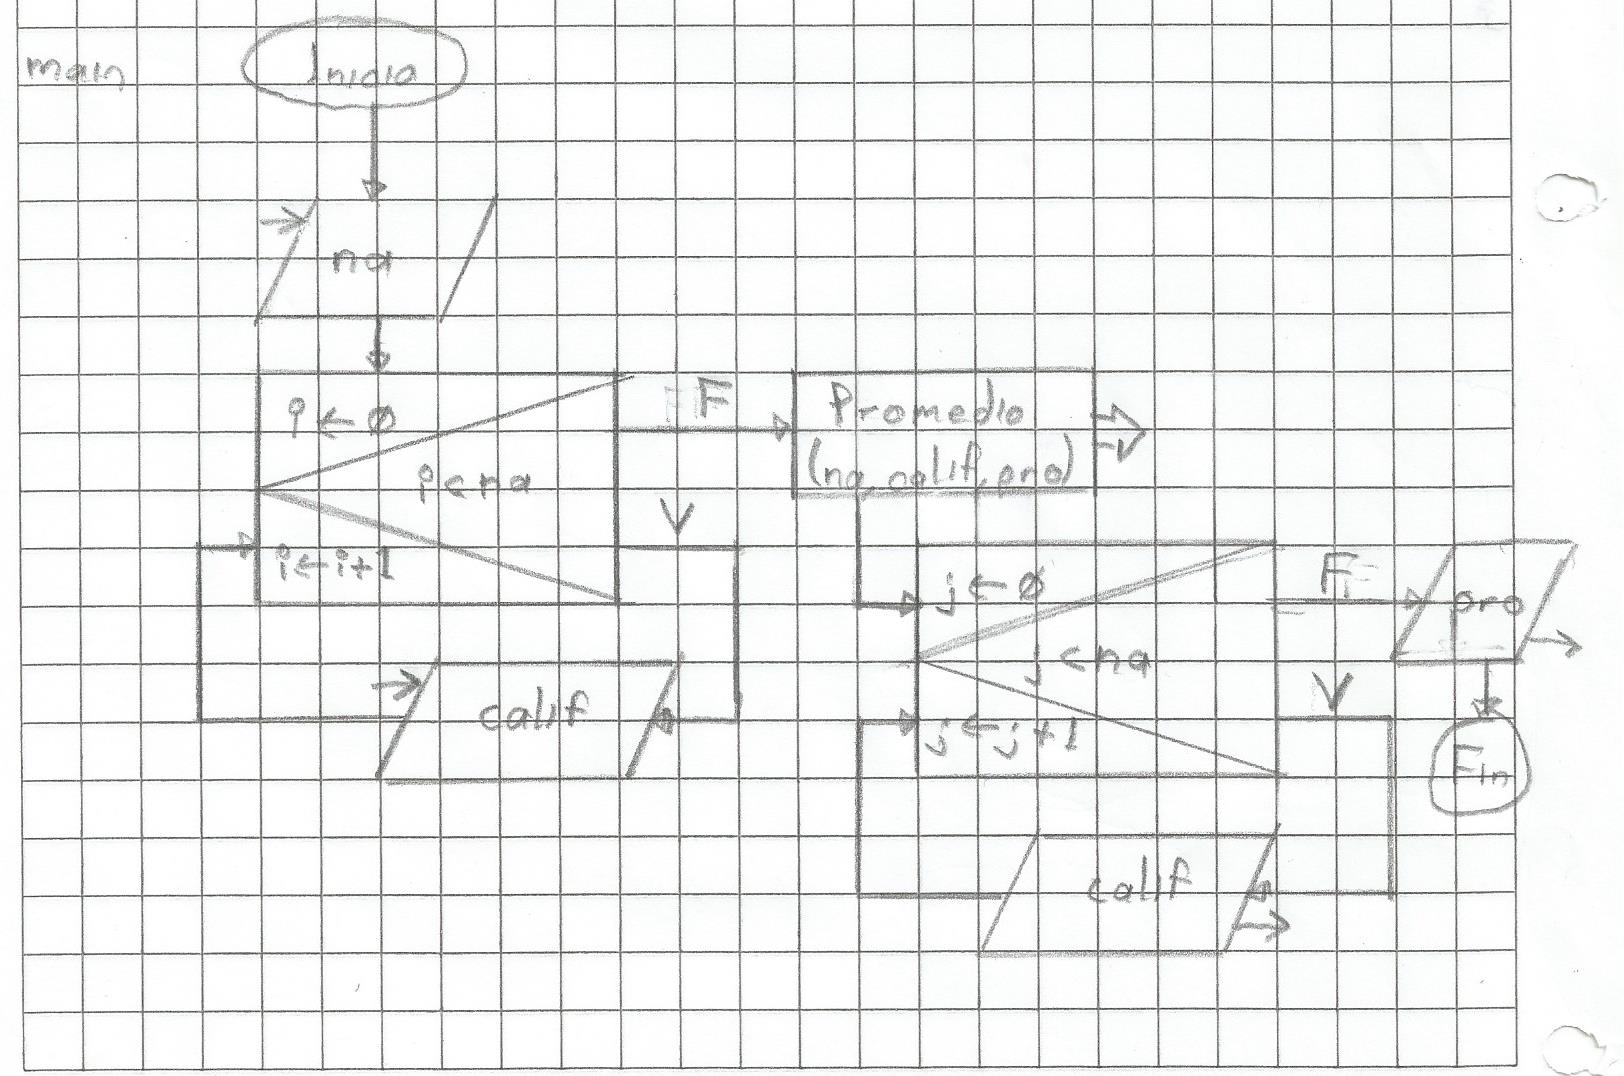 main
Inicio
na
i ← ø
i < na
i ← i+1
F
V
calif
Promedio
(na, calif, pro)
j ← ø
j < na
j ← j+1
F
V
calif
pro
Fin